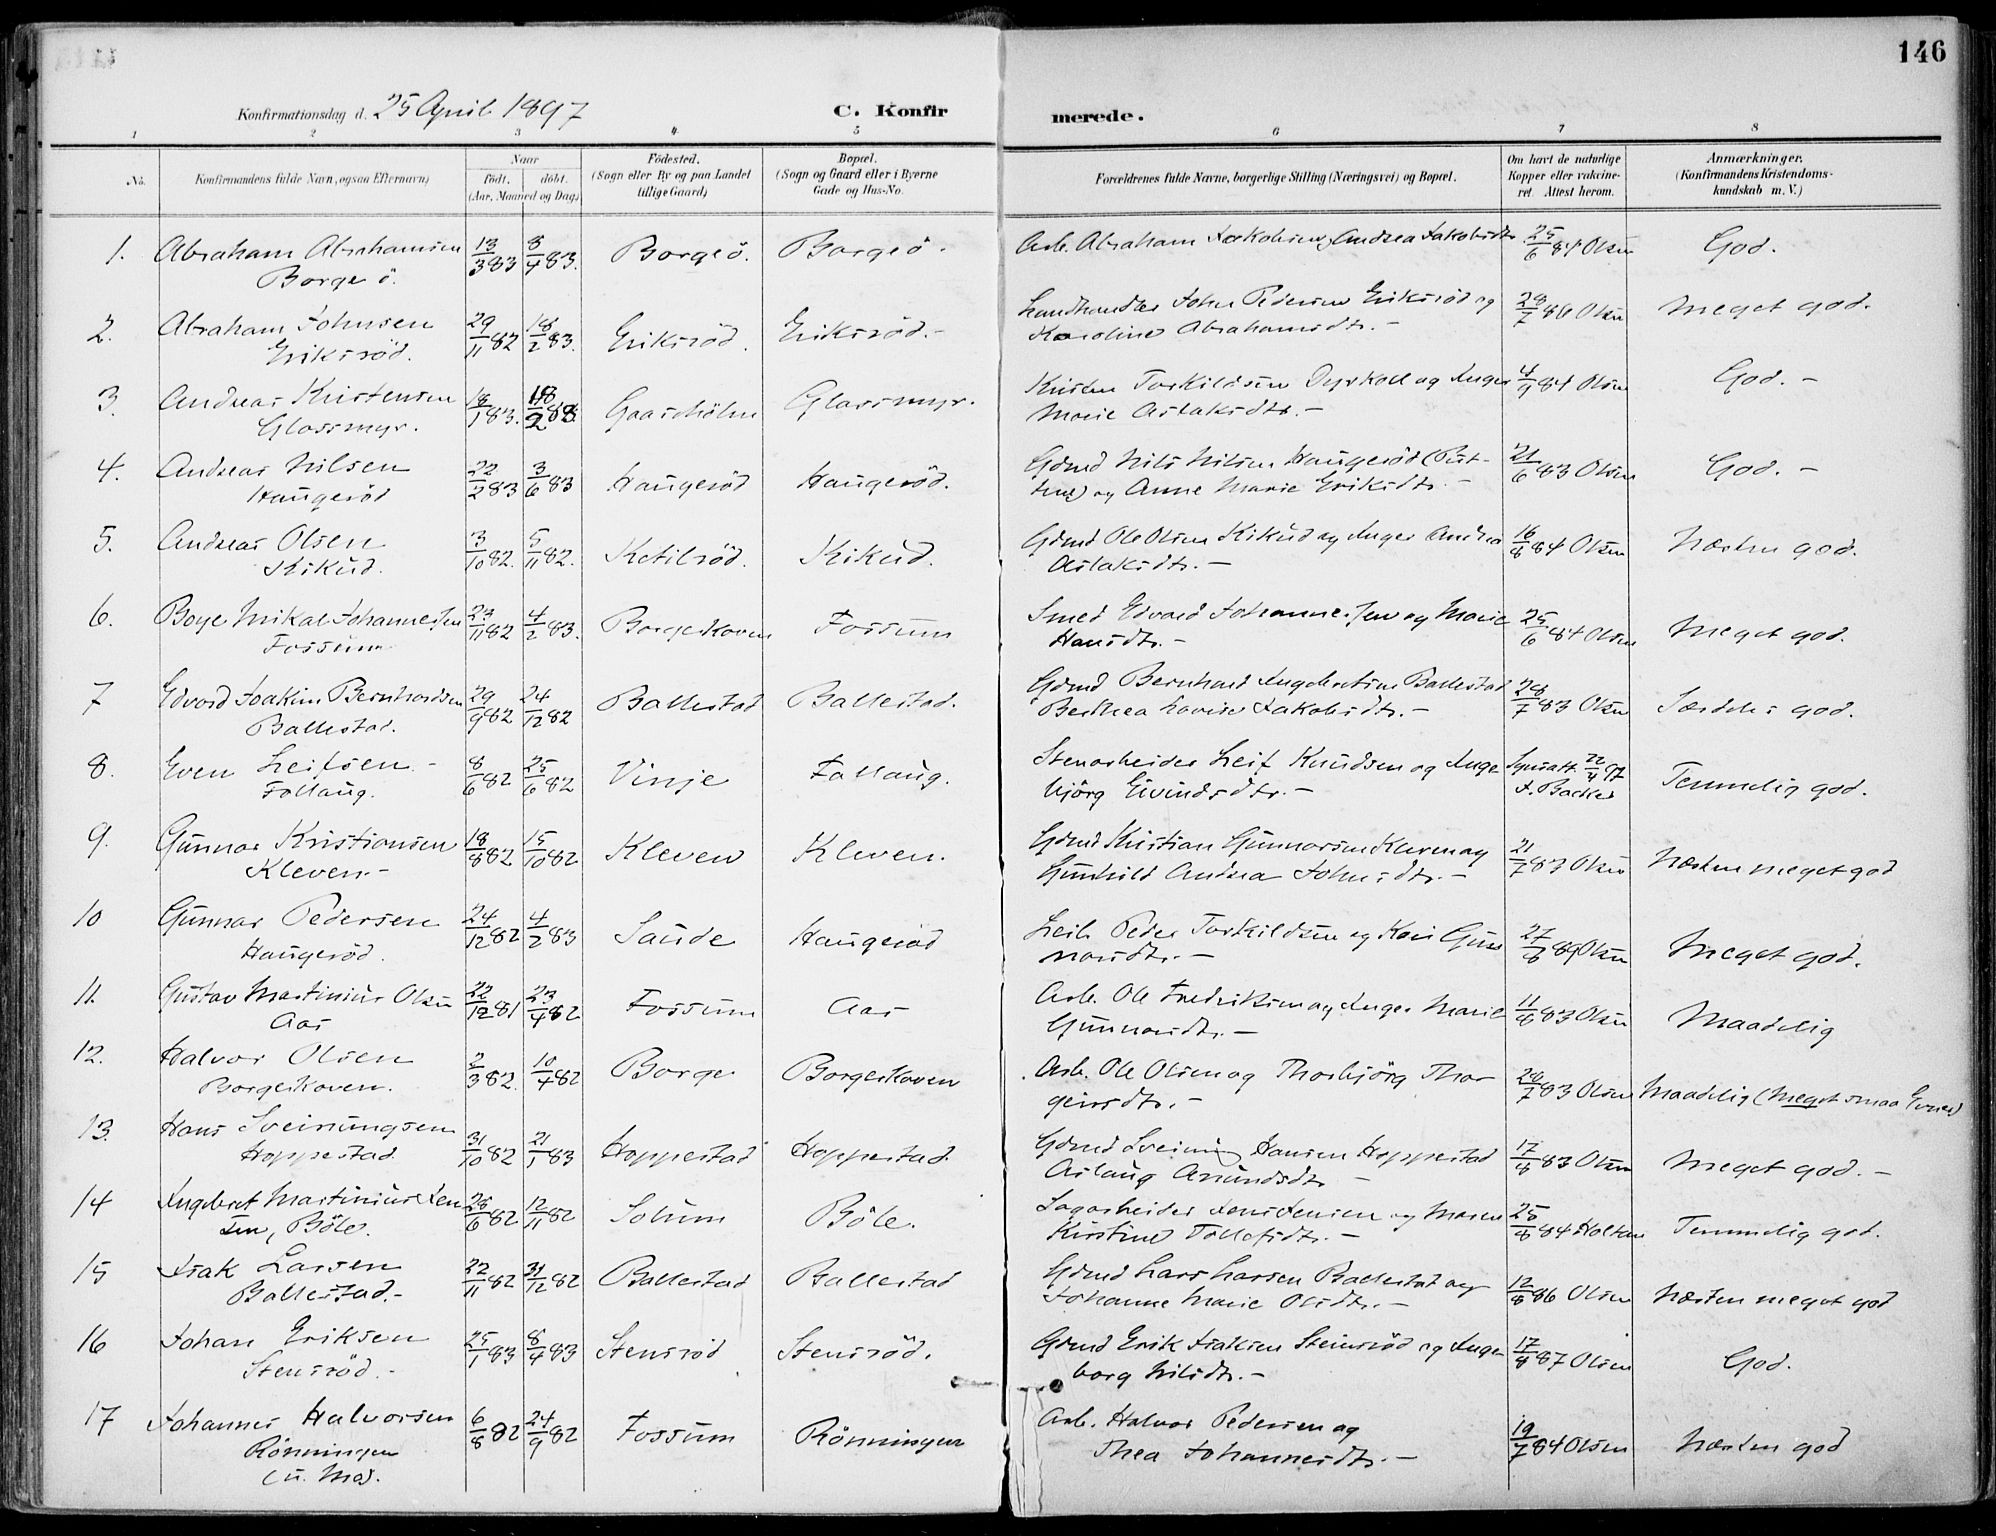 146
Konfirmationsdag d. 25 April 1897
C. Konfirmerede.
1 2 3 4 5 6 7 8
No.
Konfirmandens fulde Navn, ogsaa Efternavn)
Naar
født. døbt.
(Aar, Maaned og Dag)
Födested.
(Sogn eller By og paa Landet
tillige Gaard)
Bopæl.
(Sogn og Gaard eller i Byerne
Gade og Hus-No.
Forældrenes fulde Navne, borgerlige Stilling (Næringsvei) og Bopæl.
Om havt de naturlige
Kopper eller vakcine-
ret. Attest herom.
Anmærkninger.
(Konfirmandens Kristendoms-
kundskab m. V.)
1. Abraham Abrahamsen 13/3 83 8/4 83. Borgeö. Borgeö. Arb. Abraham Jakobsen, Andrea Jakobsdtr. 25/6 84 Olsen God.
Borgeö.
2. Abraham Johnsen 29/11 82 18/2 83. Eriksröd. Eriksröd.- Landhandler John Pedersen Eriksröd og 28/7 86 Olsen Meget god.
Eriksröd. Karoline Abrahamsdtr.-
3. Andreas Kristensen 18/1 83. 18/2 83 Gaasholm Glassmyr. Kristen Torkildsen Dyrkoll og Inger 4/9 84 Olsen God.-
Glassmyr. Marie Aslaksdtr.-
4. Andreas Nilsen 22/2 83 3/6 83 Haugeröd Haugeröd. Gdmd Nils Nilsen Haugeröd 21/6 83 Olsen God.-
Haugeröd og Anne Marie Eriksdtr.-
5. Andreas Olsen 3/10 82. 5/11 82. Ketilröd. Kikud. Gdmd Ole Olsen Kikud og Inger Andrea 16/8 84 Olsen Næsten god.
Kikud. Aslaksdtr.-
6. Boye Mikal Johannessen 23/11 82 4/2 83. Borgeskoven Fossum Smed Edvard Johannessen og Marie 25/6 84 Olsen Meget god.
Fossum Hansdtr.-
7 Edvard Joakim Bernhardsen 29/9 82 24/12 82 Ballestad Ballestad. Gdmd Bernhard Ingebretsen Ballestad 28/7 83 Olsen Særdeles god.
Ballestad. Berthea Lovise Jakobsdtr.-
8. Even Leifsen.- 8/6 82 25/6 82 Vinje Follaug. Stenarbeider Leif Knudsen og Inge- Synsatt. 22/4 97 Temmelig god.
Follaug. björg Eivindsdtr.- J. Backer
9. Gunnar Kristiansen 18/8 82 15/10 82 Kleven Kleven. Gdmd Kristian Gunnarsen Kleven og 21/7 83 Olsen Næsten meget god
Kleven.- Gunhild Andrea Johnsdtr.-
10 Gunnar Pedersen 24/12 82 4/2 83 Saude Haugeröd Leil. Peder Torkildsen og Kari Gun- 27/8 89 Olsen Meget god.
Haugeröd. narsdtr.-
11. Gustav Martinius Olsen 22/12 81 23/4 82 Fossum Aas Arb. Ole Fredriksen og Inger Marie 11/8 83 Olsen Maadelig
Aas Gunnarsdtr.-
12. Halvor Olsen 2/3 82. 10/4 82 Borge Borgeskoven Arb. Ole Olsen og Thorbjörg Thor- 28/7 83 Olsen Maadelig (Meget smaa Evner)
Borgeskoven. geirsdtr.-
13. Hans Sveinungsen 31/10 82 21/1 83 Hoppestad Hoppestad Gdmd Sveinung Hansen Hoppestad 17/8 83 Olsen Meget god.-
Hoppestad Aslaug Amundsdtr.-
14 Ingebret Martinius Jen 25/6 82 12/11 82 Solum Böle. Sagarbeider Jens Jensen og Maren 25/8 84 Holtan Temmelig god.
sen, Böle. Kirstine Tollefsdtr.-
15 Isak Larsen 22/11 82 31/12 82 Ballestad Ballestad Gdmd Lars Larsen Ballestad og 12/8 86 Olsen Næsten meget god
Ballestad.- Johanne Marie Olsdtr.-
16 Johan Eriksen 25/1 83 8/4 83 Stensröd Stensröd. Gdmd Erik Isaksen Stensröd og Inge- 17/8 87 Olsen God.
Stensröd.- borg Nilsdtr.-
17 Johannes Halvorsen 6/8 82 24/9 82 Fossum Rönningen Arb. Halvor Pedersen og 19/7 84 Olsen Næsten god
Rönningen Thea Johannesdtr.-
(u. Mo).